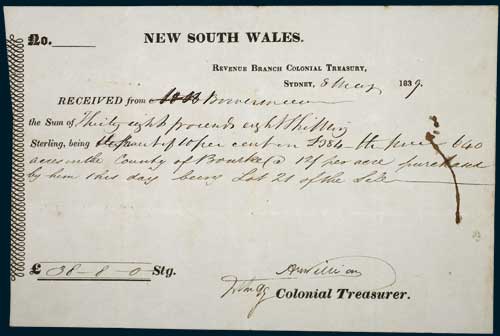 No.
NEW SOUTH WALES.
REVENUE BRANCH COLONIAL TREASURY,
SYDNEY, 8 May 1839.
RECEIVED from Bowerman
the Sum of Thirty eight pounds eight Shillings
Sterling, being deposit of 10 per cent on £384 the price 640
acres in the County of Bourke @ 12/ per acre purchased
by him this day being Lot 21 of the Sale
£ 38-8-0 Stg.
Colonial Treasurer.